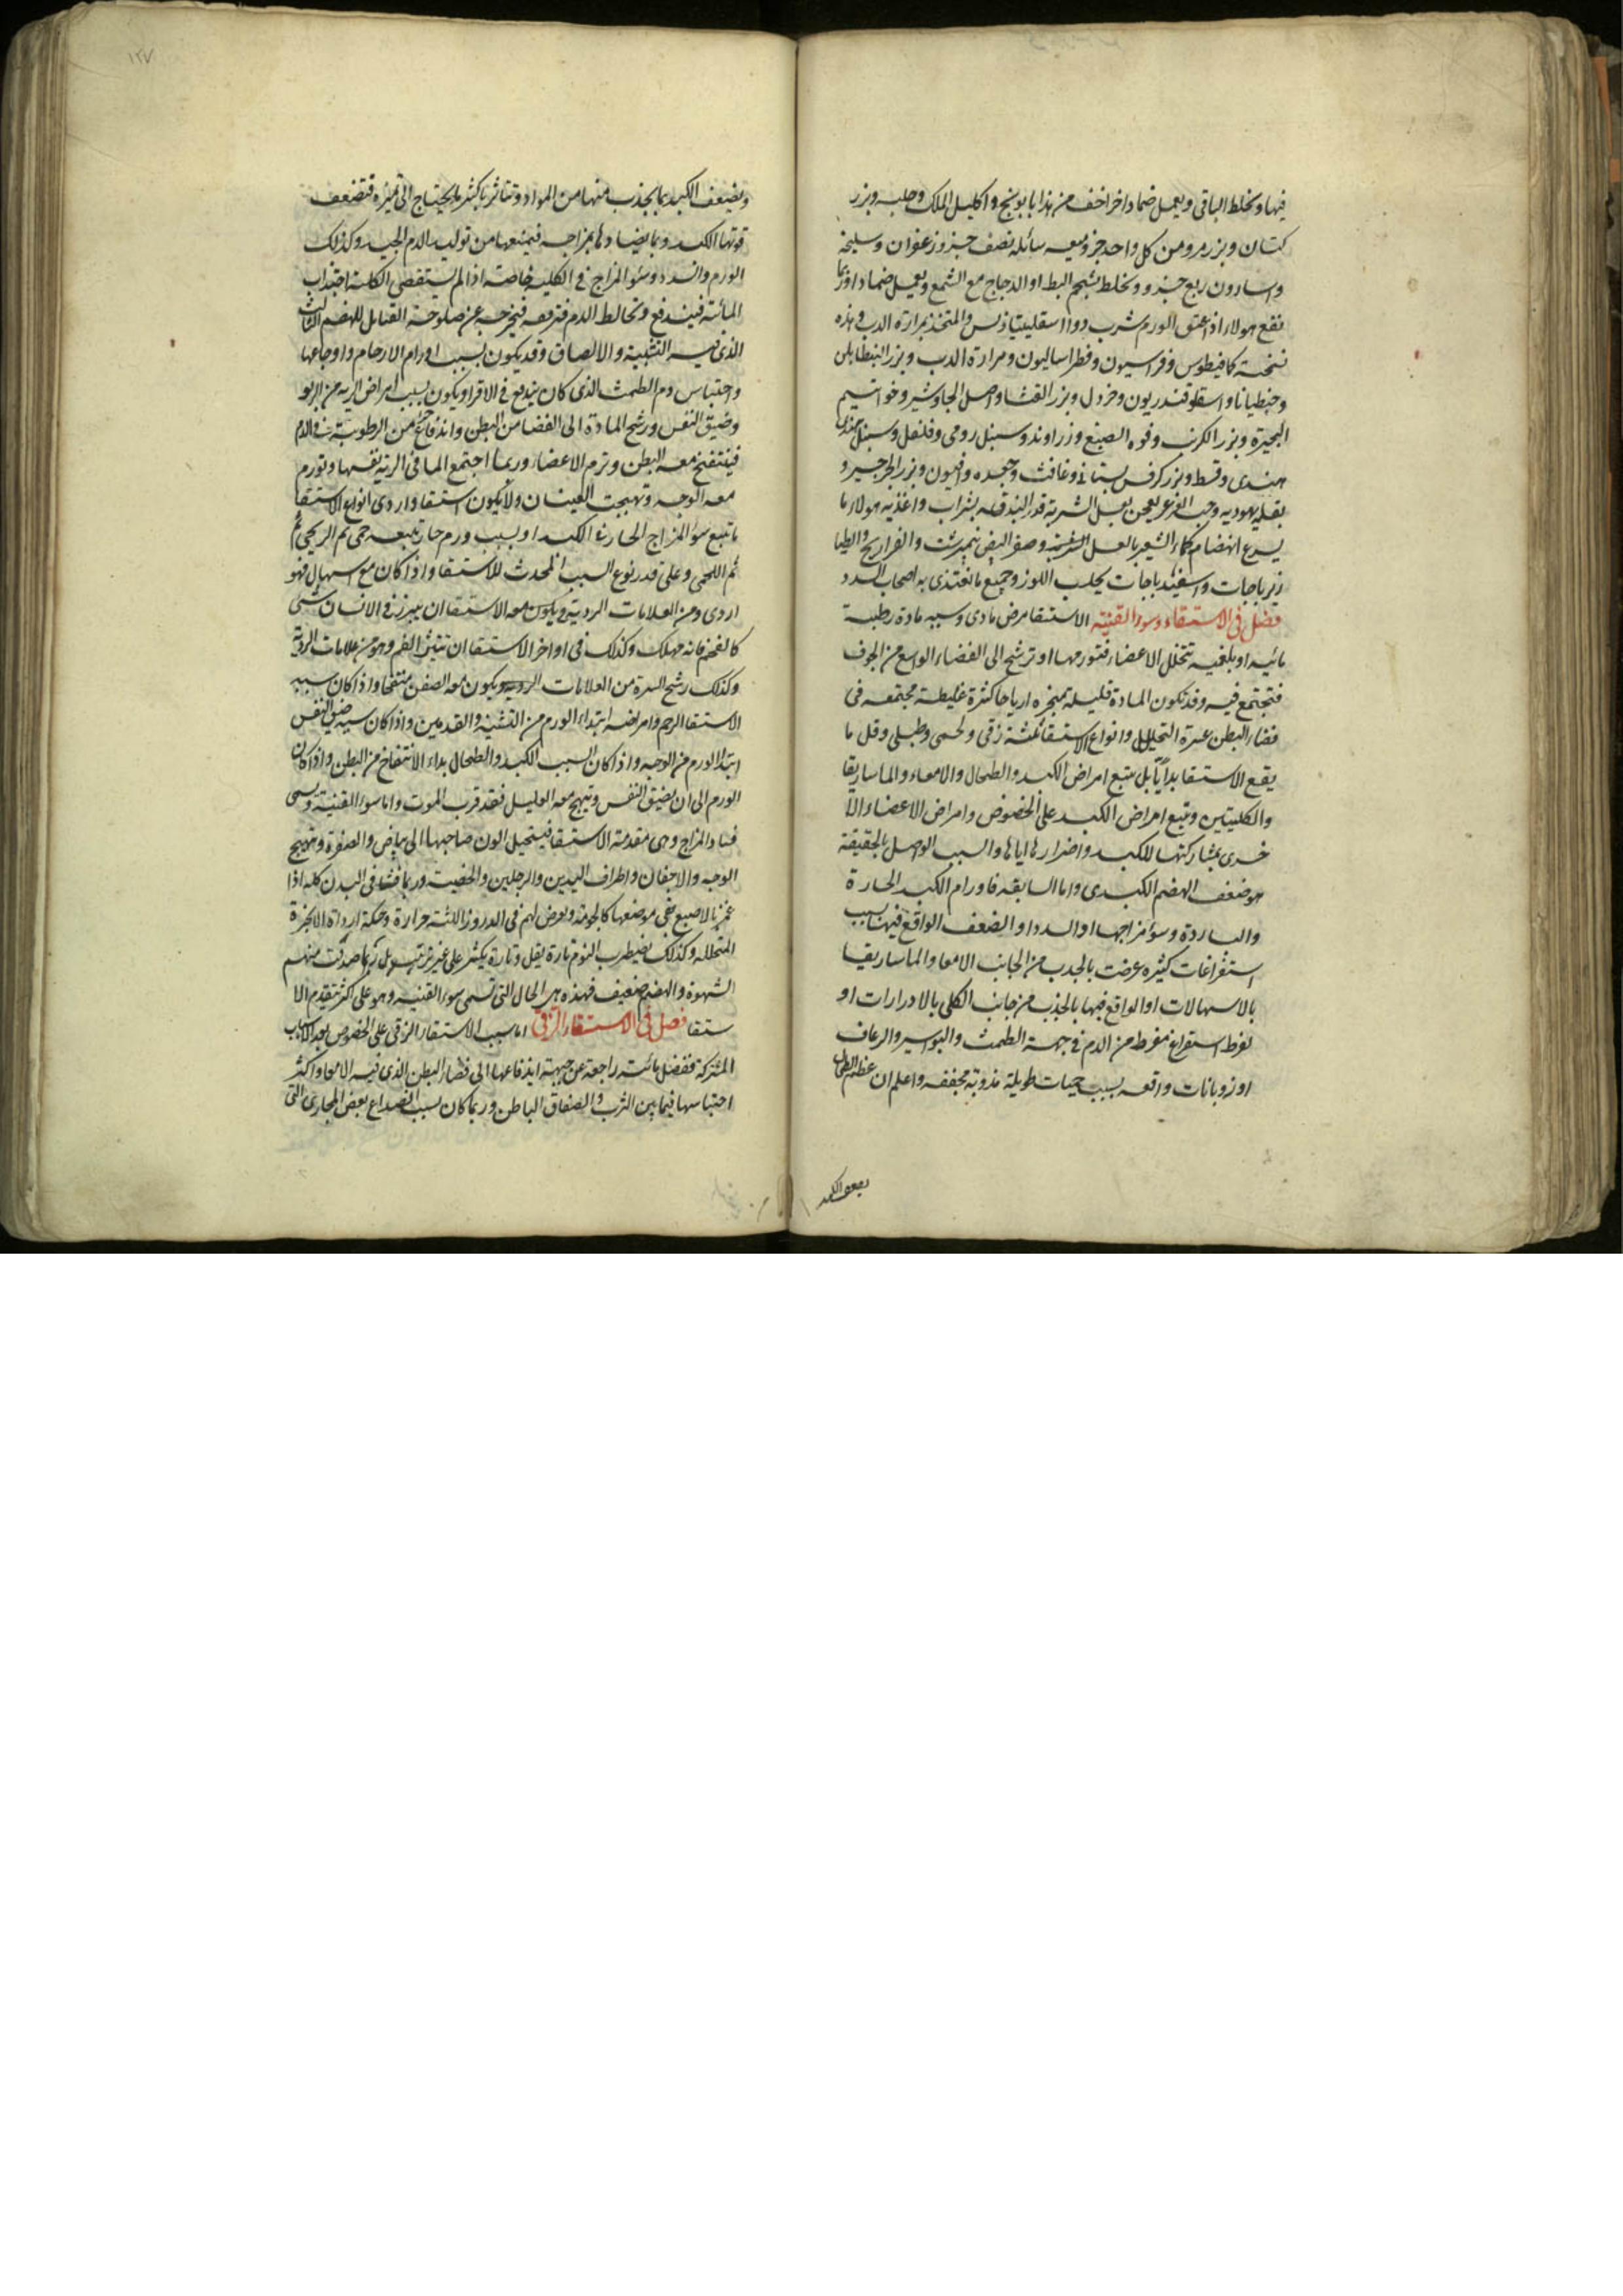 فيها ويخلط الباقي ويعمل ضمادا اخر اخف من هذا بابونج واكليل الملك وحلبه وبزر
كتان وبزر مرو من كل واحد جزو ميعه سائله نصف جزو زعفران وسليخه
واسارون ربع جزو ويخلط بشحم البط او الدجاج مع الشمع ويعمل ضمادا وربما
نفع هولاء اذا عتق الورم شرب دواء اسقلبيناذس والمتخذ بمرارة الدب وهذه
نسخته كمافيطوس وفراسيون وفطراساليون ومرارة الدب وبزر
وجنطيانا واسقولوقندريون وخردل وبزر القثاء واصل الجاوشير وخواتيم
البحيرة وبزر الكرنب وفوه الصبغ وزراوند وسنبل رومي وفلفل وسنبل
هندى وقسط وبزر كرفس بستاني وغافت وجعده وافيون وبزر الجرجير و
بقله يهوديه وحب العرعر يعجن بعسل الشربة قدر البندقه بشراب واغذيه هولاء ما
يسرع انهضام كماء الشعير بالعسل وصفر البيض نيمبرشت والفراريج
زيرباجات واسفيدباجات بحليب اللوز وجميع ما يغتذى به اصحاب السدد
فصل في الاستسقاء وسوء القنية الاستسقا مرض مادى وسببه مادة رطبة
مائيه او بلغميه تتخلل الاعضاء فتورمها او ترشح الى الفضاء الواسع من الجوف
فتجتمع فيه وقد تكون المادة قليلة تبخره ارياحا كثيرة غليظة مجتمعه فى
فضاء البطن عسرة التحليل وانواع الاستسقا ثلثة زقى ولحمى وطبلى وقل ما
يقع الاستسقا بدأيا بل يتبع امراض الكبد والطحال والامعاء والماساريقا
والكليتين ويتبع امراض الكبد على الخصوص وامراض الاعضاء الا
خرى بمشاركتها للكبد واضرارها اياها والسبب الواصل بالحقيقة
هو ضعف الهضم الكبدى واما السابقه فاورام الكبد الحارة
والباردة وسوء مزاجها او السدد او الضعف الواقع فيها بسبب
استفراغات كثيره عرضت بالجذب من الجانب الامعا والماساريقا
بالاسهالات او الواقع فيها بالجذب من جانب الكلى بالادرارات او
لفرط استفراغ مفرط من الدم في جهة الطمث والبواسير والرعاف
او ذوبانات واقعه بسبب حميات طويلة مذوبة مجففه واعلم ان عظم الطحال
يضعف الكبد
١٢٧
ويضعف الكبد بما يجذب منها من المواد وتتاثر باكثر ما يحتاج الى تميزه فتضعف
قوتها الكبد وبما يضادها بمزاجه فيمنعها من توليد الدم الجيد وكذلك
الورم والسدد وسوء المزاج في الكلية خاصة اذا لم يستقصى الكلية اجتذاب
المائية فيندفع وتخالط الدم فترققه فيخرجه عن صلوحه القابل للهضم الثالث
الذى فيه التشبيه والالصاق وقد يكون بسبب اورام الارحام واوجاعها
واحتباس دم الطمث الذى كان يندفع في الاقراء ويكون بسبب امراض الريه من الربو
وضيق النفس ورشح المادة الى الفضا من البطن واندفاع من الرطوبة
فينتفخ معه البطن وترم الاعضاء وربما اجتمع الما فى الرية نفسها وتورم
معه الوجه وتهيجت العينان ولا يكون استسقا واردى انواع الاستسقا
ما يتبع سوء المزاج الحار في الكبد او بسبب ورم حار يتبعه حمى ثم الريحى
ثم اللحمى وعلى قدر نوع السبب المحدث للاستسقا واذا كان مع اسهال فهو
اردى ومن العلامات الردية ويكون معه الاستسقا ان يبرز في الانسان شى
كالفحم فانه مهلك وكذلك فى اواخر الاستسقا ان تنتن الفم وهو من علامات الردية
وكذلك رشح السرة من العلامات الرديه ويكون معه الصفن منتفخا واذا كان سببه
الاستسقا الرحم وامراضه ابتداء الورم من التثنية والقدمين واذا كان سببه ضيق النفس
ابتدا الورم من الوجه واذا كان السبب الكبد والطحال بداء الانتفاخ من البطن واذا كان
الورم الى ان يضيق النفس ويتهيج معه العليل فقد قرب الموت واما سوء القنية ويسمى
فساد المزاج وهى مقدمة الاستسقا فيستحيل اللون صاحبها الى بياض والصفرة وتهيج
الوجه والاجفان واطراف اليدين والرجلين والخصية وربما فشا فى البدن كله اذا
غمز بالاصبع بقى موضعها كالجوبة ويعرض لهم فى الدروز اللثة حرارة وحكة لرداة الابخرة
المتحللة وكذلك يضيطرب النوم تارة يقل وتارة يكثر على غير ترتيب بل ربما صدقت منهم
الشهوة والهضم ضعيف فهذه هي الحال التى تسمى سوء القنيه وهو على اكثر تتقدم الا
ستسقا فصل في الاستسقاء الزقي اما سبب الاستسقاء الزقى على الخصوص بعد الاسباب
المشتركة ففضل مائية راجعة عن جهة اندفاعها الى فضاء البطن الذى فيه الامعا واكثر
احتباسها فيما بين الثرب والصفاق الباطن وربما كان بسبب انصداع بعض المجارى التى